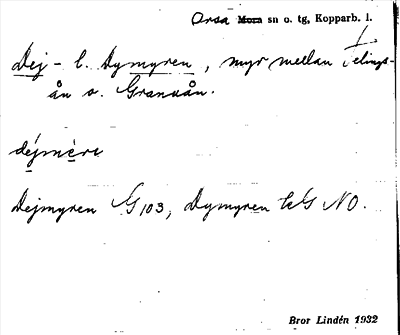 Orsa Mora sn o. tg, Kopparb. l.
Dej- l. Dymyren, myr mellan Telings-
ån o. Granaån.
dejmère
Dejmyren G 103, Dymyren t G NO.
Bror Lindén 1932